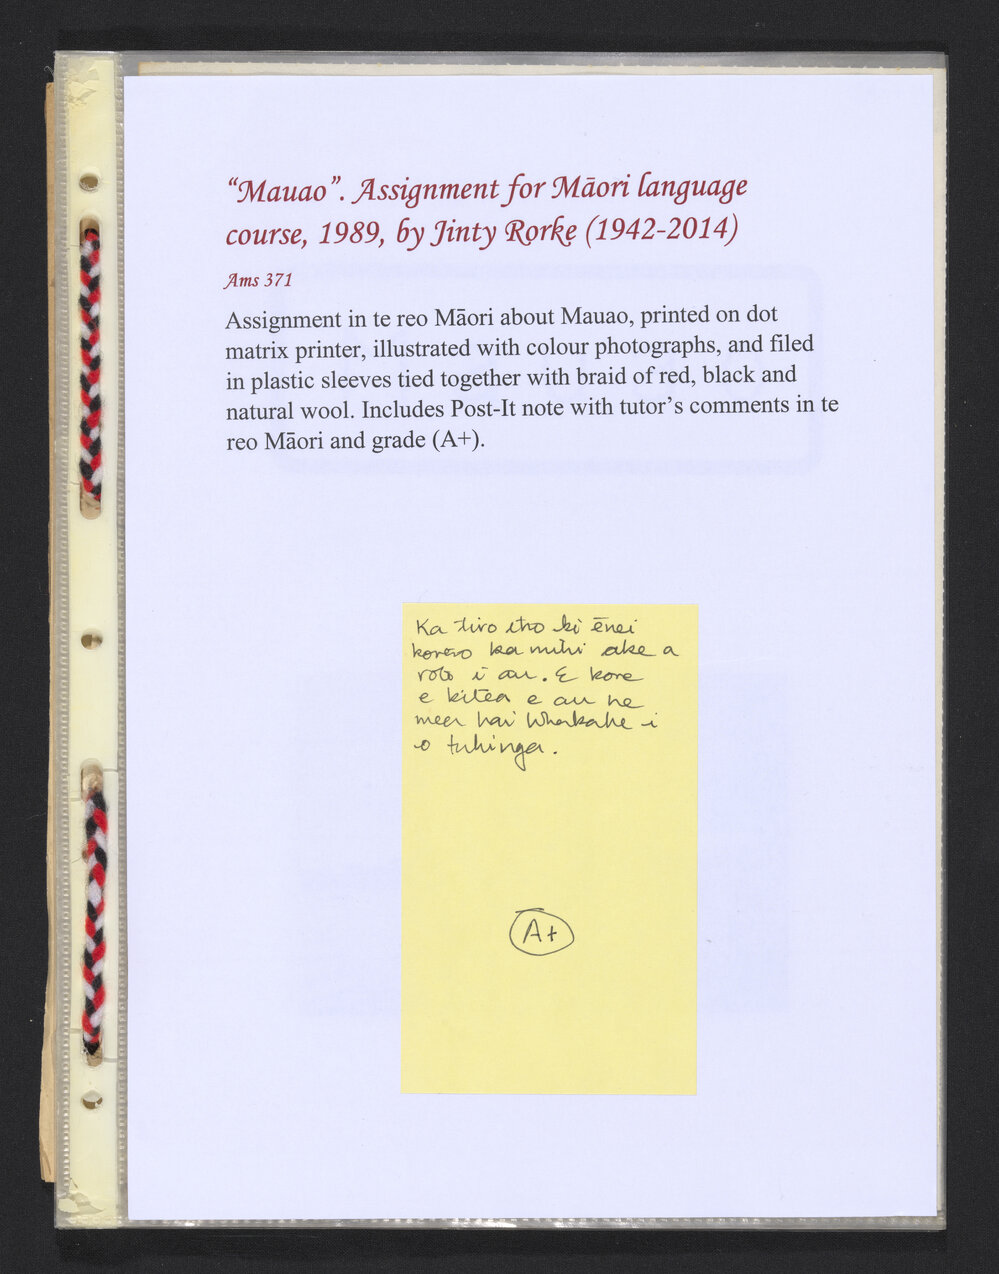 “Mauao”. Assignment for Māori language
course, 1989, by Jinty Rorke (1942-2014)
Ams 371
Assignment in te reo Māori about Mauao, printed on dot
matrix printer, illustrated with colour photographs, and filed
in plastic sleeves tied together with braid of red, black and
natural wool. Includes Post-It note with tutor’s comments in te
reo Māori and grade (A+).
Ka tiro iho ki ēnei
korero ka mihi ake a
roto i au. E kore
e kitea e au he
mea hai whakahe i
o tuhinga.
A+